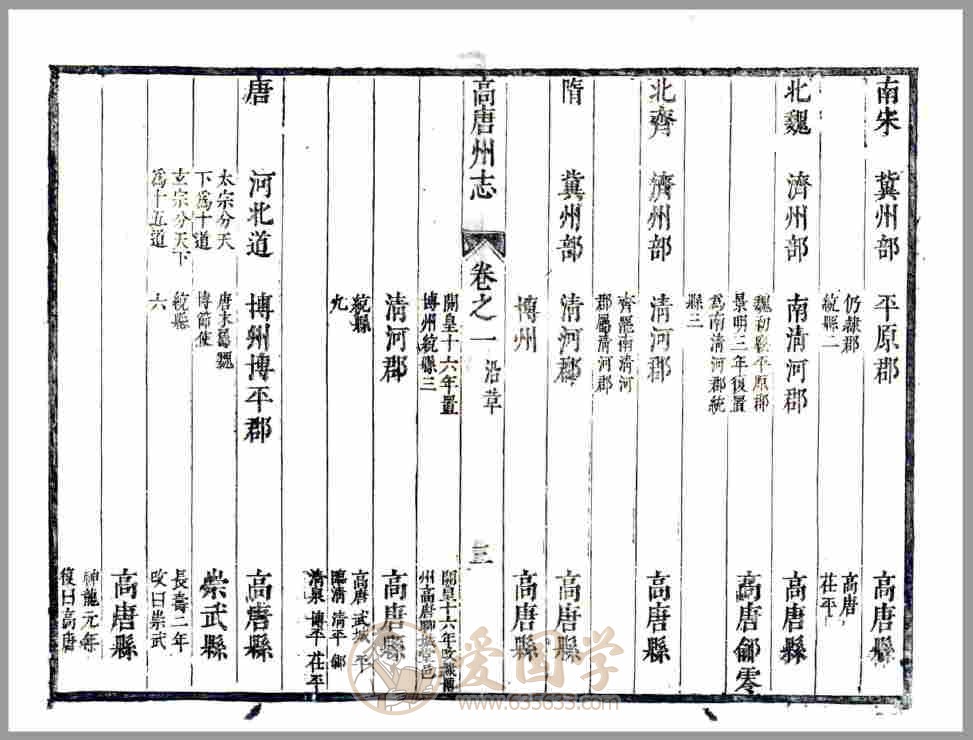 南宋　冀州部　平原郡　高唐縣
仍隸郡　高唐
統縣二　茌平
北魏　濟州部　南清河郡　高唐縣
魏初隸平原郡　高唐　鄃　零
景明三年復置
爲南清河郡統
縣三
北齊　濟州部　清河郡　高唐縣
齊罷南清河
郡屬清河郡
隋　冀州部　清河郡　高唐縣
博州　高唐縣
高唐州志　卷之一　沿革　三
開皇十六年置　開皇十六年改隸博
博州統縣三　州高唐聊城堂邑
清河郡　高唐縣
統縣　高唐　武城　平
九　臨清　清平　鄃
清泉　博平　茌平
唐　河北道　博州博平郡　高唐縣
太宗分天　唐末爲魏　崇武縣
下爲十道　博節使
玄宗分天下　統縣　長壽二年
爲十五道　六　改曰崇武
高唐縣
神龍元年
復曰高唐
爱国学
www.633633.com